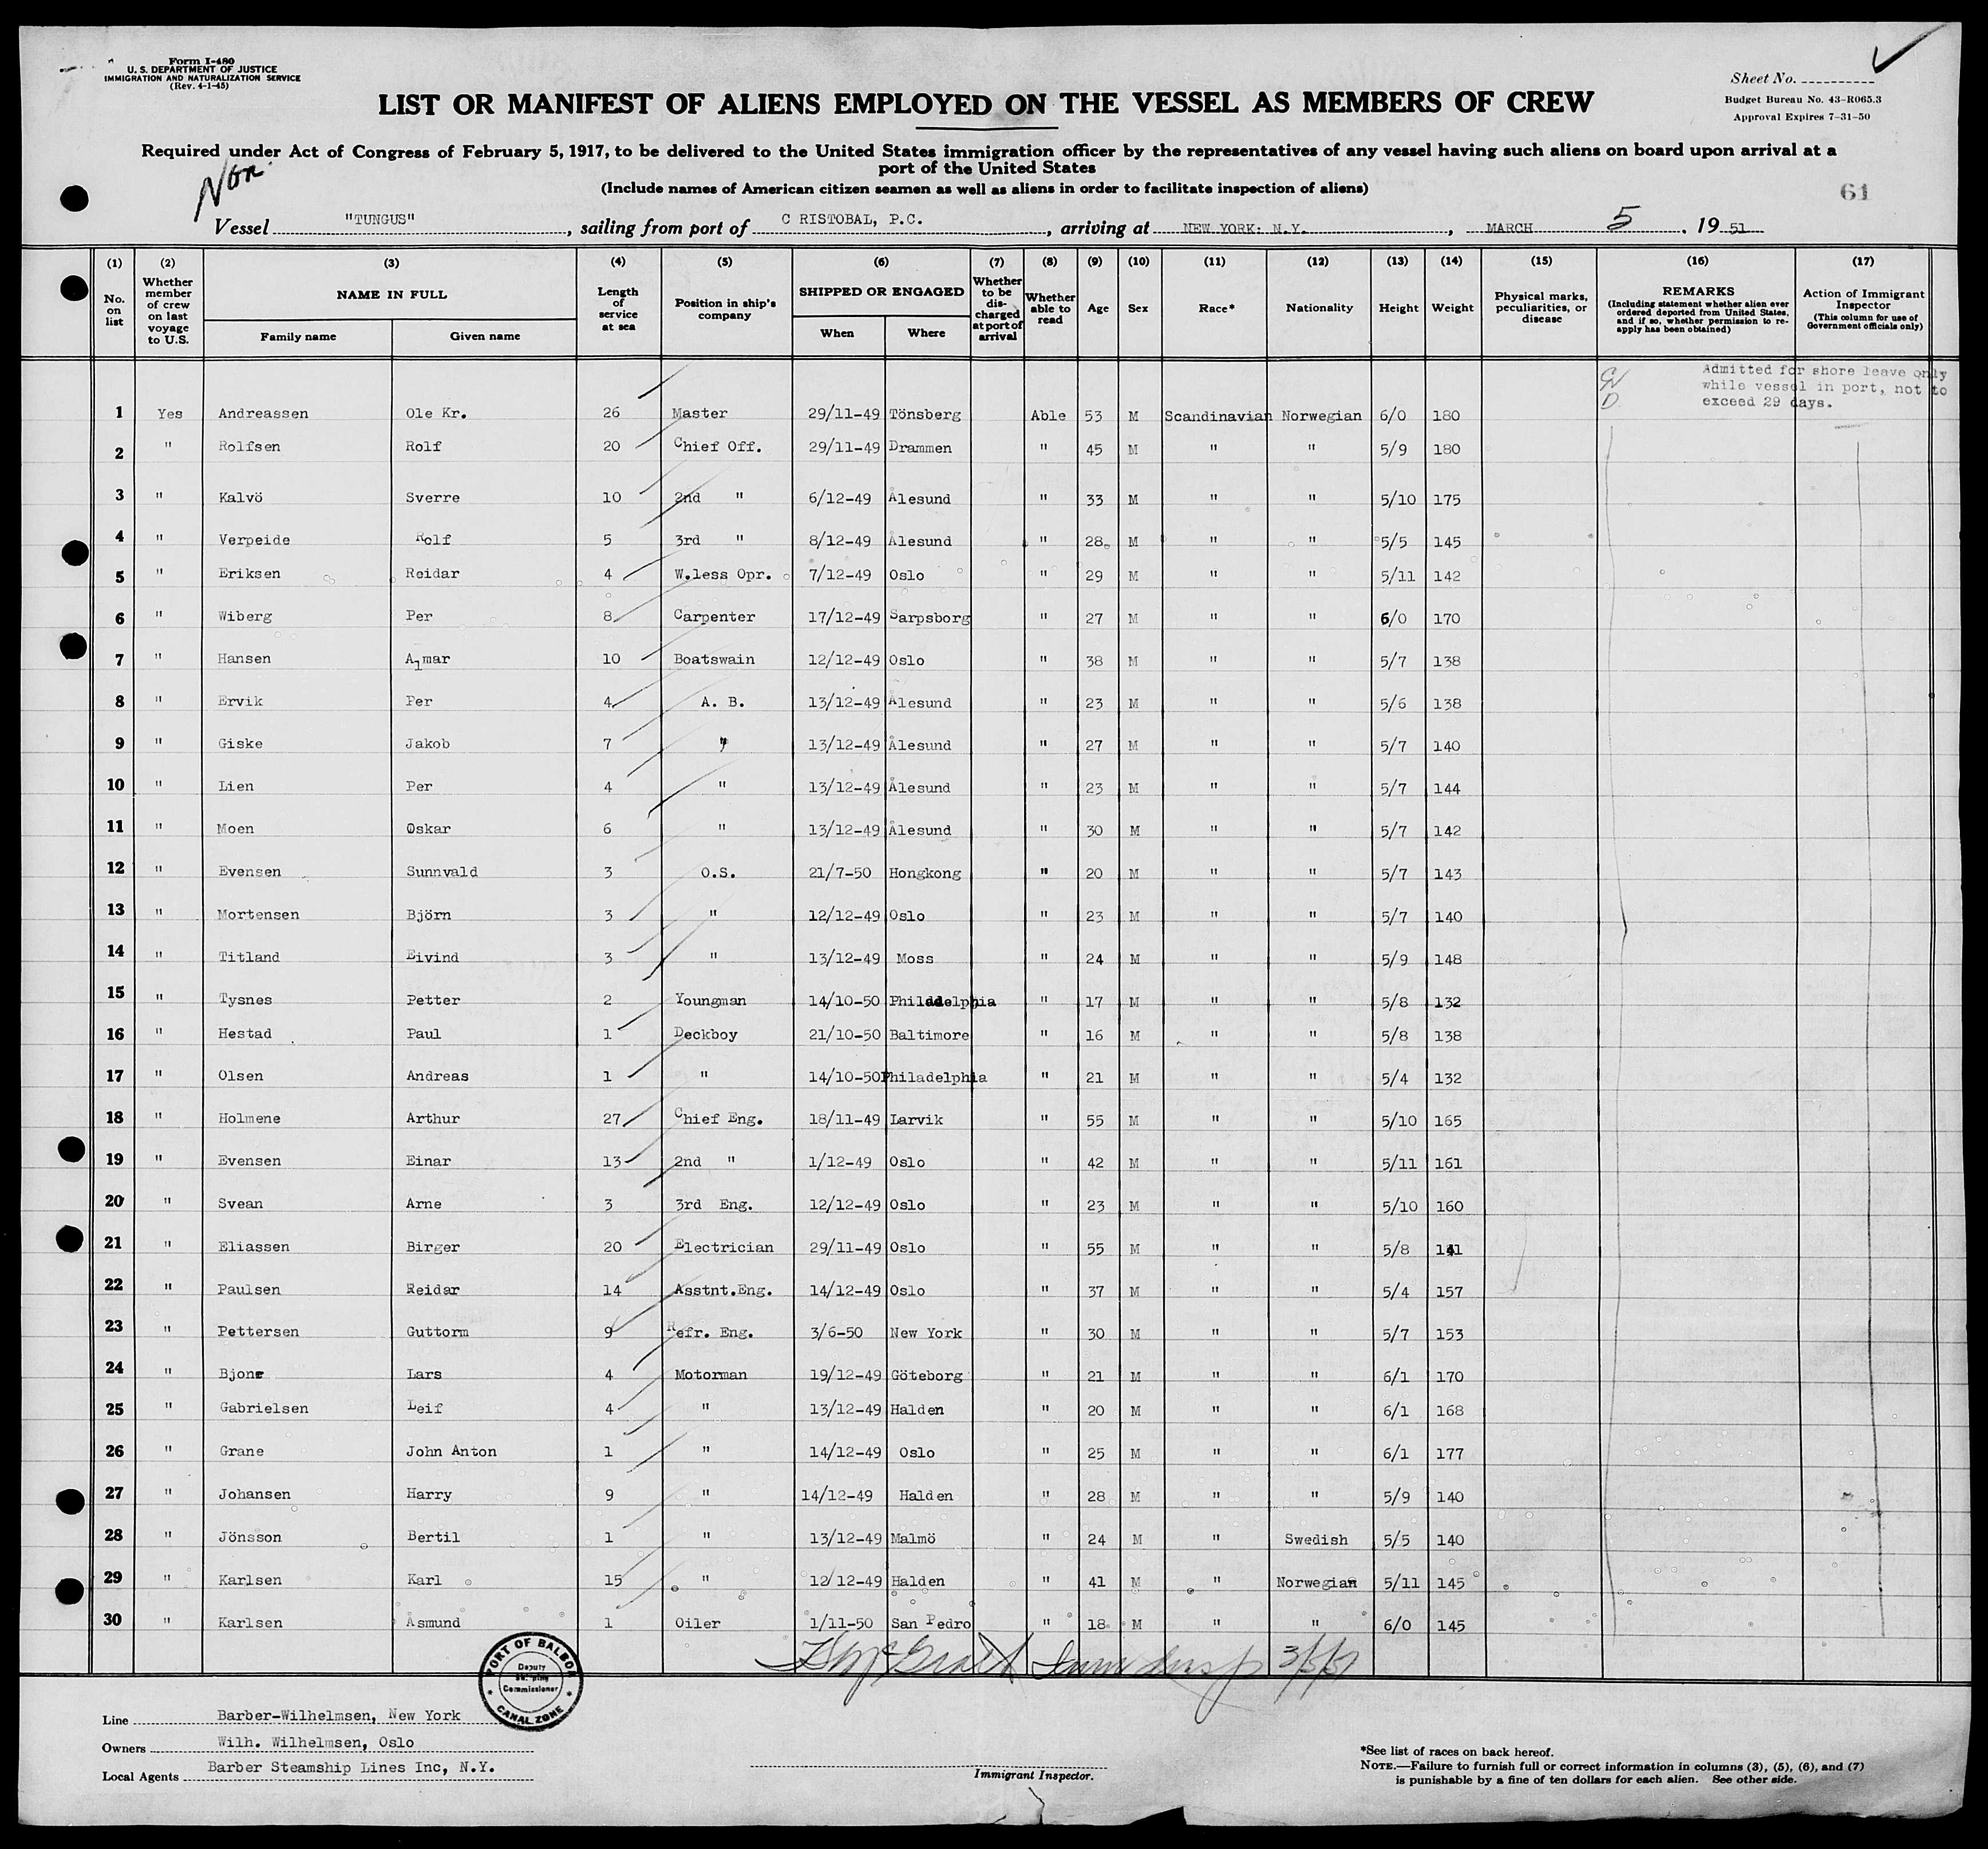 Form I-480
U. S. DEPARTMENT OF JUSTICE
IMMIGRATION AND NATURALIZATION SERVICE
(Rev. 4-1-45)
Sheet No.
Budget Bureau No. 43-R065.3
Approval Expires 7-31-50
LIST OR MANIFEST OF ALIENS EMPLOYED ON THE VESSEL AS MEMBERS OF CREW
Required under Act of Congress of February 5, 1917, to be delivered to the United States immigration officer by the representatives of any vessel having such aliens on board upon arrival at a
port of the United States
(Include names of American citizen seamen as well as aliens in order to facilitate inspection of aliens)
61
Nor.
Vessel "TUNGUS", sailing from port of C RISTOBAL, P.C., arriving at NEW YORK: N.Y., MARCH 5, 19 51
(1) No. on list
(2) Whether member of crew on last voyage to U.S.
(3) NAME IN FULL Family name Given name
(4) Length of service at sea
(5) Position in ship's company
(6) SHIPPED OR ENGAGED When Where
(7) Whether to be discharged at port of arrival
(8) Whether able to read
(9) Age
(10) Sex
(11) Race*
(12) Nationality
(13) Height
(14) Weight
(15) Physical marks, peculiarities, or disease
(16) REMARKS (Including statement whether alien ever ordered deported from United States, and if so, whether permission to reapply has been obtained)
(17) Action of Immigrant Inspector (This column for use of Government officials only)
Admitted for shore leave only
while vessel in port, not to
exceed 29 days.
1 Yes Andreassen Ole Kr. 26 Master 29/11-49 Tönsberg Able 53 M Scandinavian Norwegian 6/0 180
2 " Rolfsen Rolf 20 Chief Off. 29/11-49 Drammen " 45 M " " 5/9 180
3 " Kalvö Sverre 10 2nd " 6/12-49 Ålesund " 33 M " " 5/10 175
4 " Verpeide Rolf 5 3rd " 8/12-49 Ålesund " 28 M " " 5/5 145
5 " Eriksen Reidar 4 W.less Opr. 7/12-49 Oslo " 29 M " " 5/11 142
6 " Wiberg Per 8 Carpenter 17/12-49 Sarpsborg " 27 M " " 6/0 170
7 " Hansen Almar 10 Boatswain 12/12-49 Oslo " 38 M " " 5/7 138
8 " Ervik Per 4 A. B. 13/12-49 Ålesund " 23 M " " 5/6 138
9 " Giske Jakob 7 " 13/12-49 Ålesund " 27 M " " 5/7 140
10 " Lien Per 4 " 13/12-49 Ålesund " 23 M " " 5/7 144
11 " Moen Oskar 6 " 13/12-49 Ålesund " 30 M " " 5/7 142
12 " Evensen Sunnvald 3 O.S. 21/7-50 Hongkong " 20 M " " 5/7 143
13 " Mortensen Björn 3 " 12/12-49 Oslo " 23 M " " 5/7 140
14 " Titland Eivind 3 " 13/12-49 Moss " 24 M " " 5/9 148
15 " Tysnes Petter 2 Youngman 14/10-50 Philadelphia " 17 M " " 5/8 132
16 " Hestad Paul 1 Deckboy 21/10-50 Baltimore " 16 M " " 5/8 138
17 " Olsen Andreas 1 " 14/10-50 Philadelphia " 21 M " " 5/4 132
18 " Holmene Arthur 27 Chief Eng. 18/11-49 Larvik " 55 M " " 5/10 165
19 " Evensen Einar 13 2nd " 1/12-49 Oslo " 42 M " " 5/11 161
20 " Svean Arne 3 3rd Eng. 12/12-49 Oslo " 23 M " " 5/10 160
21 " Eliassen Birger 20 Electrician 29/11-49 Oslo " 55 M " " 5/8 141
22 " Paulsen Reidar 14 Asstnt.Eng. 14/12-49 Oslo " 37 M " " 5/4 157
23 " Pettersen Guttorm 9 Refr. Eng. 3/6-50 New York " 30 M " " 5/7 153
24 " Lars 4 Motorman 19/12-49 Göteborg " 21 M " " 6/1 170
25 " Gabrielsen Leif 4 " 13/12-49 Halden " 20 M " " 6/1 168
26 " Grane John Anton 1 " 14/12-49 Oslo " 25 M " " 6/1 177
27 " Johansen Harry 9 " 14/12-49 Halden " 28 M " " 5/9 140
28 " Jönsson Bertil 1 " 13/12-49 Malmö " 24 M " Swedish 5/5 140
29 " Karlsen Karl 15 " 12/12-49 Halden " 41 M " Norwegian 5/11 145
30 " Karlsen Åsmund 1 Oiler 1/11-50 San Pedro " 18 M " " 6/0 145
3/5/51
PORT OF BALBOA
Deputy
Shipping
Commissioner
CANAL ZONE
Line Barber-Wilhelmsen, New York
Owners Wilh. Wilhelmsen, Oslo
Local Agents Barber Steamship Lines Inc, N.Y.
Immigrant Inspector.
*See list of races on back hereof.
NOTE.—Failure to furnish full or correct information in columns (3), (5), (6), and (7)
is punishable by a fine of ten dollars for each alien. See other side.